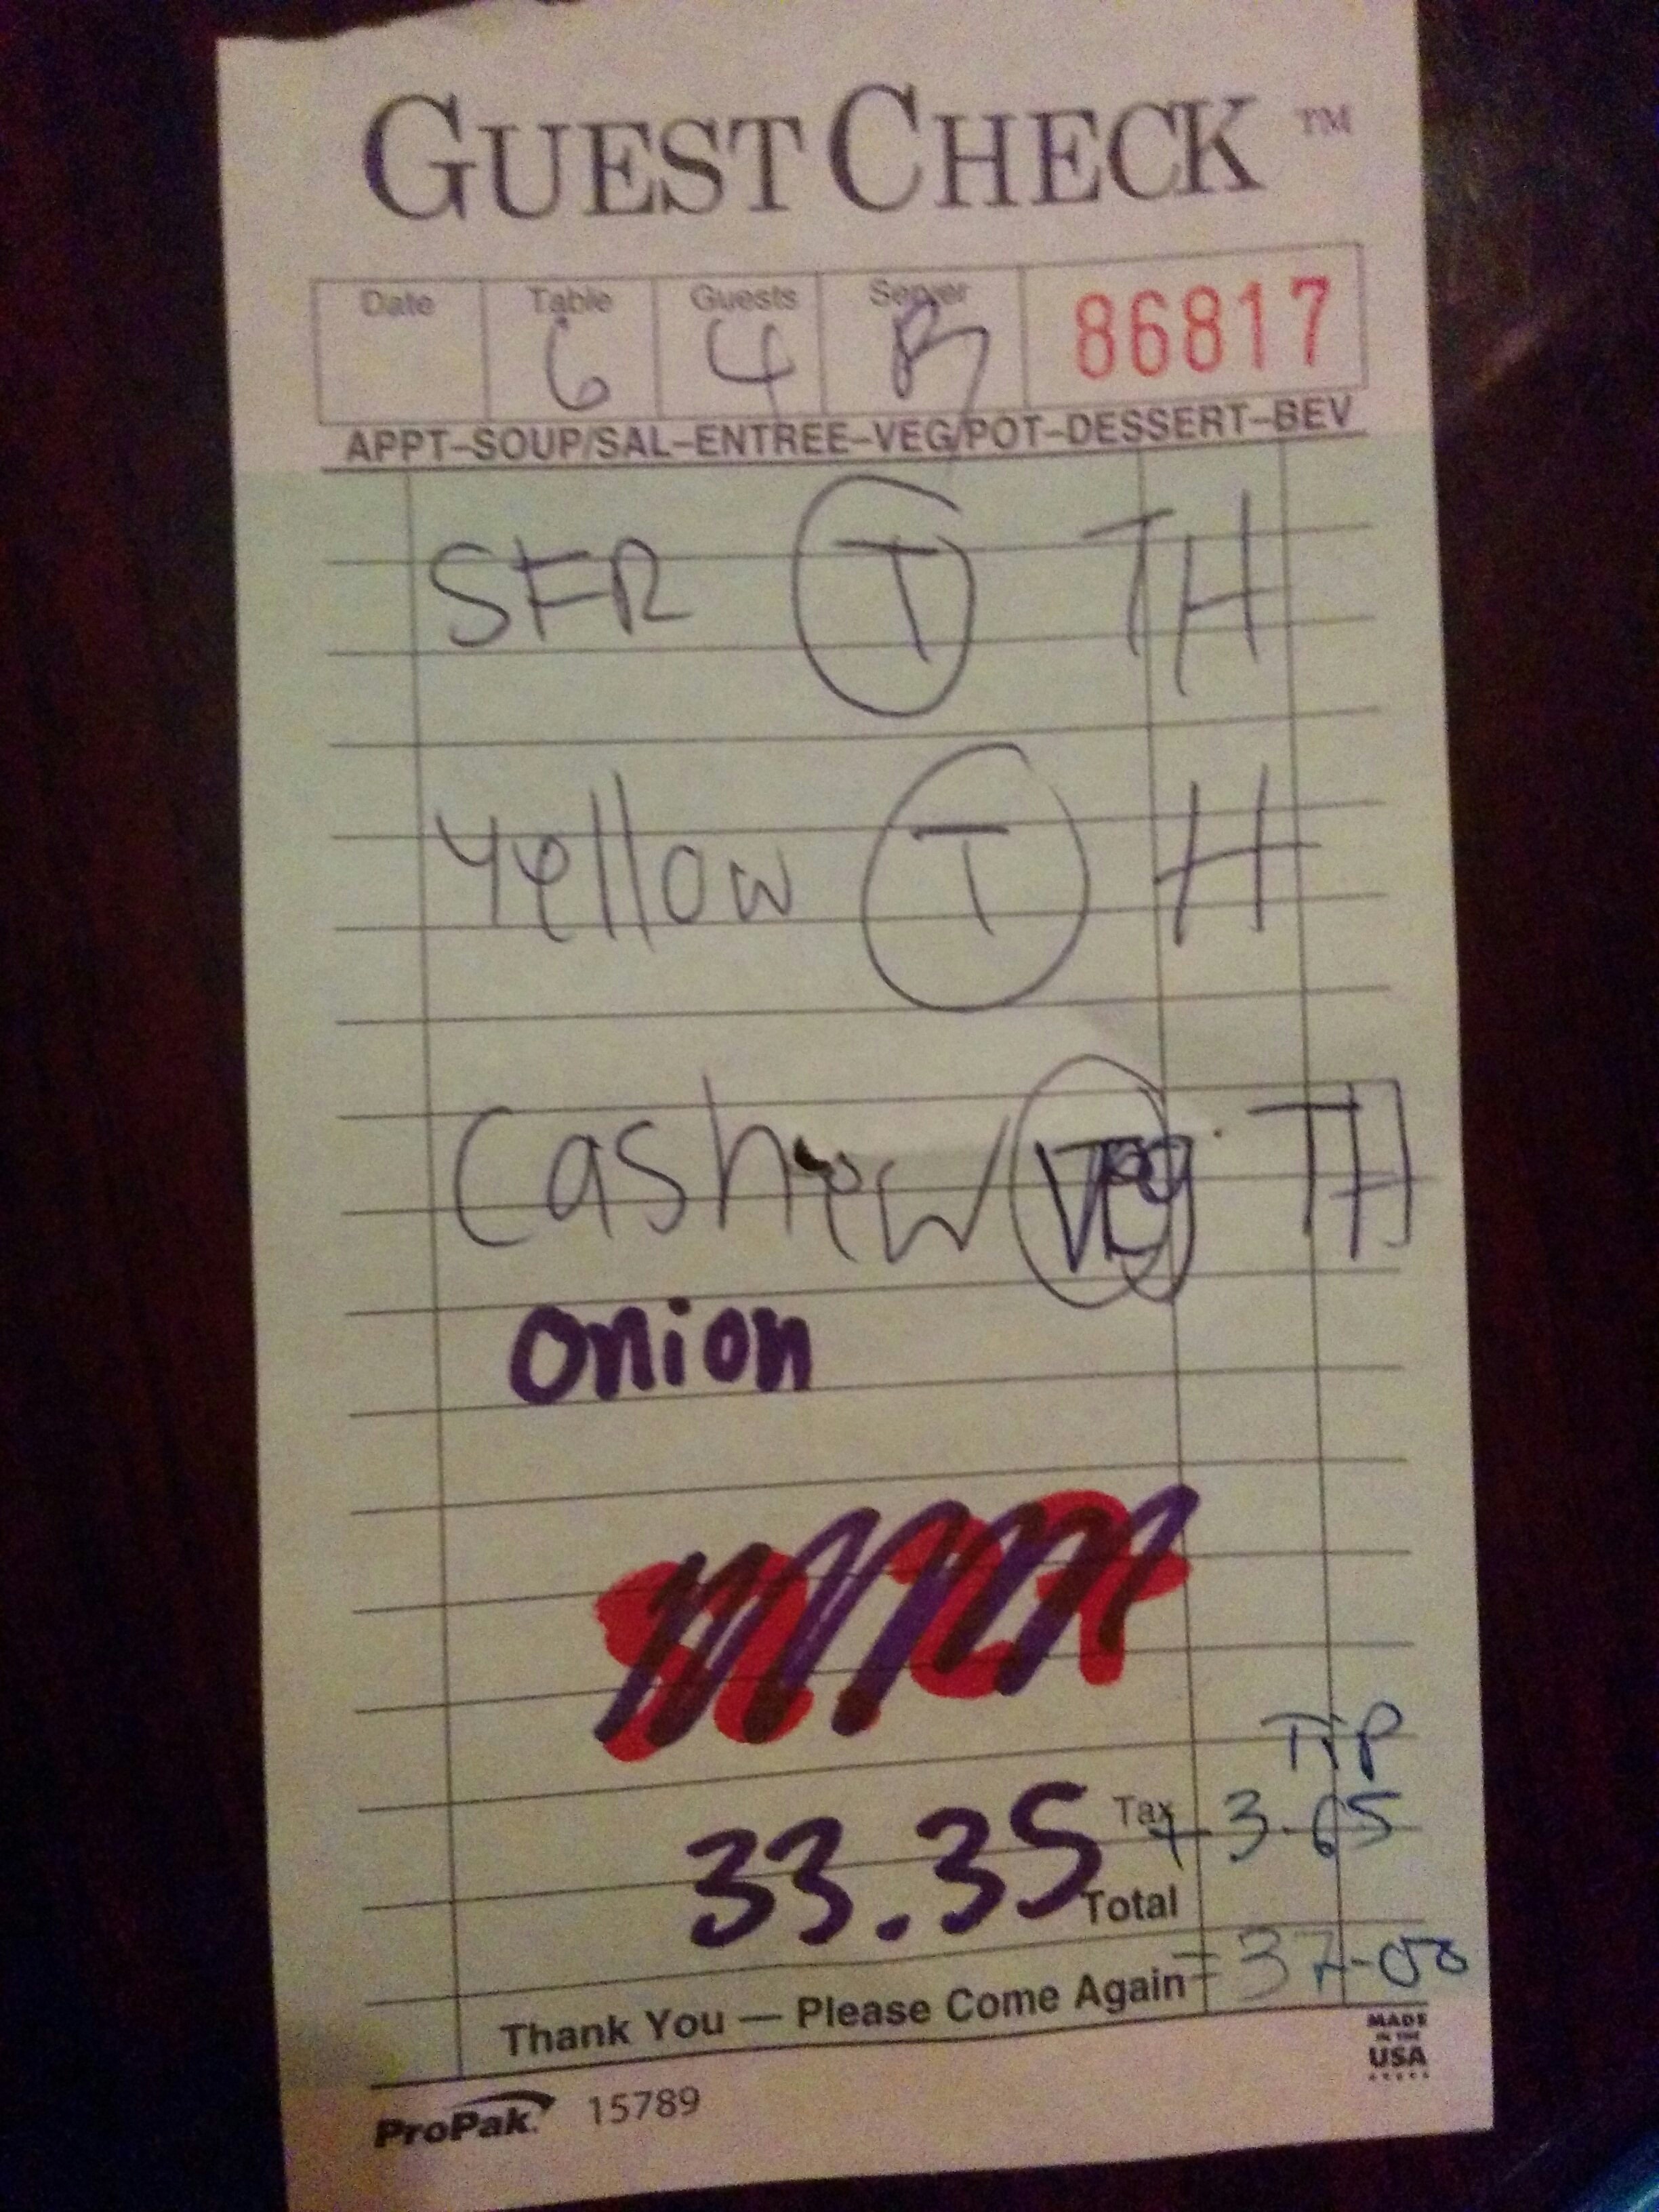 GUEST CHECK ™
Date Table Guests Server 86817
6 4
APPT–SOUP/SAL–ENTREE–VEG/POT–DESSERT–BEV
SFR T TH
Yellow T H
Cashew Veg TH
onion
TIP
33.35 Tax + 3.65
Total
Thank You — Please Come Again = 37-00
MADE
IN THE
USA
ProPak. 15789